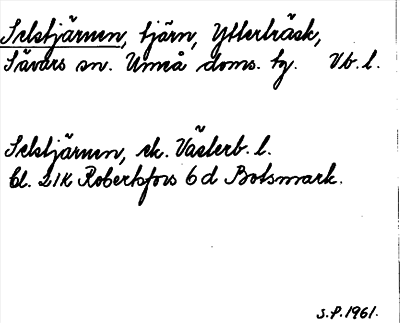 Selstjärnen, tjärn, Ytterträsk,
Sävars sn. Umeå doms. tg. Vb. l.
Selstjärnen, ek. Västerb. l.
bl. 21K Robertsfors 6d Botsmark.
S.P. 1961.